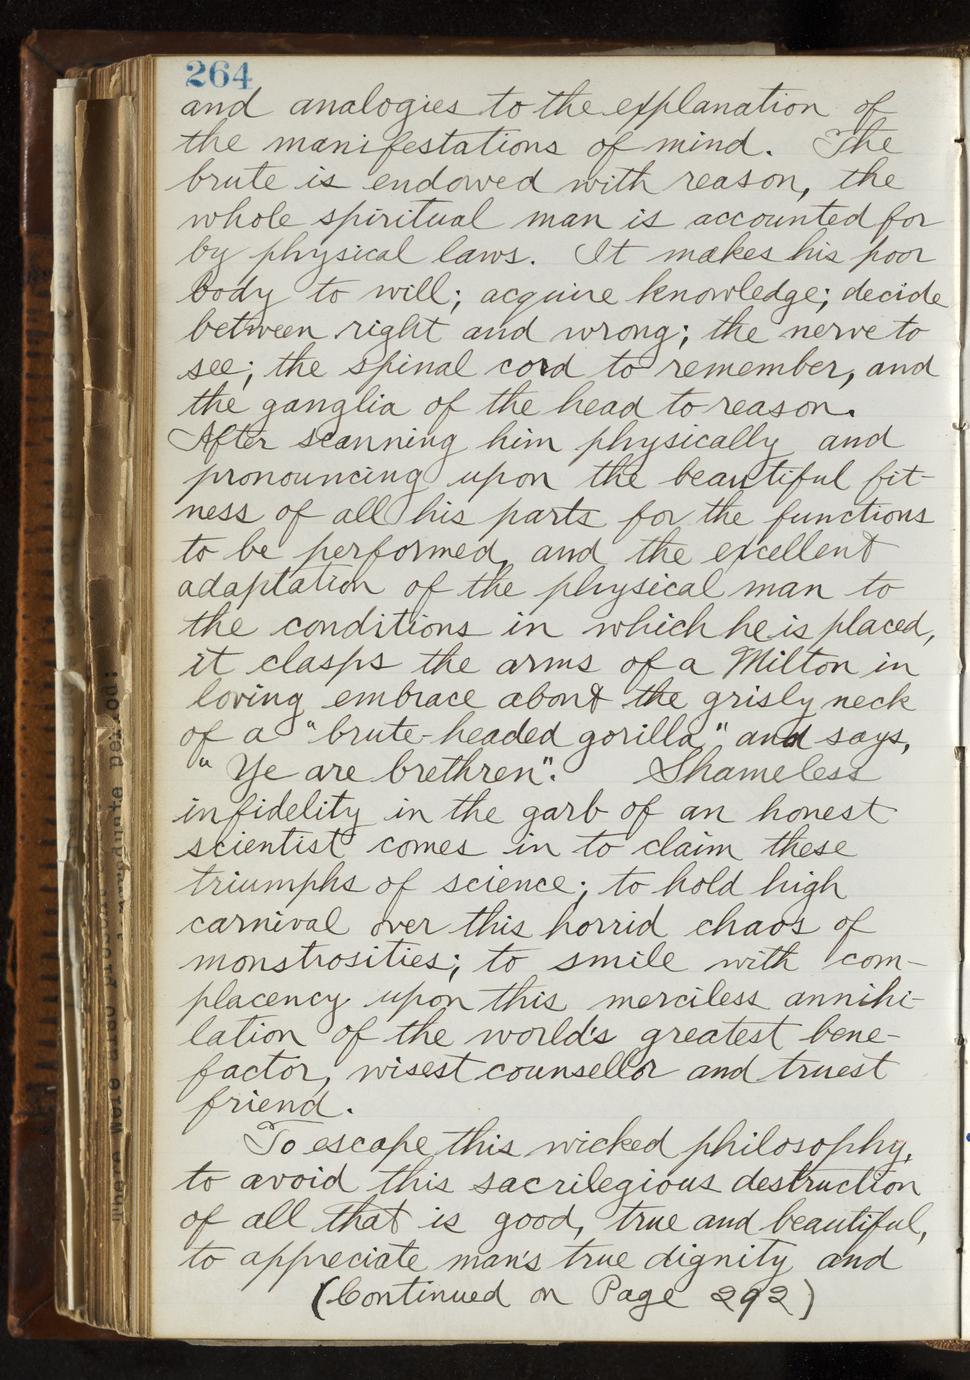 264
and analogies to the explanation of
the manifestations of mind. The
brute is endowed with reason, the
whole spiritual man is accounted for
by physical laws. It makes his poor
body to will; acquire knowledge; decide
between right and wrong; the nerve to
see; the spinal cord to remember, and
the ganglia of the head to reason.
After scanning him physically and
pronouncing upon the beautiful fit-
ness of all his parts for the functions
to be performed, and the excellent
adaptation of the physical man to
the conditions in which he is placed,
it clasps the arms of a Milton in
loving embrace about the grisly neck
of a "brute-headed gorilla" and says,
"Ye are brethren". Shameless
infidelity in the garb of an honest
scientist comes in to claim these
triumphs of science; to hold high
carnival over this horrid chaos of
monstrosities; to smile with com-
placency upon this merciless annihi-
lation of the world's greatest bene-
factor, wisest counsellor and truest
friend.
To escape this wicked philosophy,
to avoid this sacrilegious destruction
of all that is good, true and beautiful,
to appreciate man's true dignity and
(Continued on Page 292)